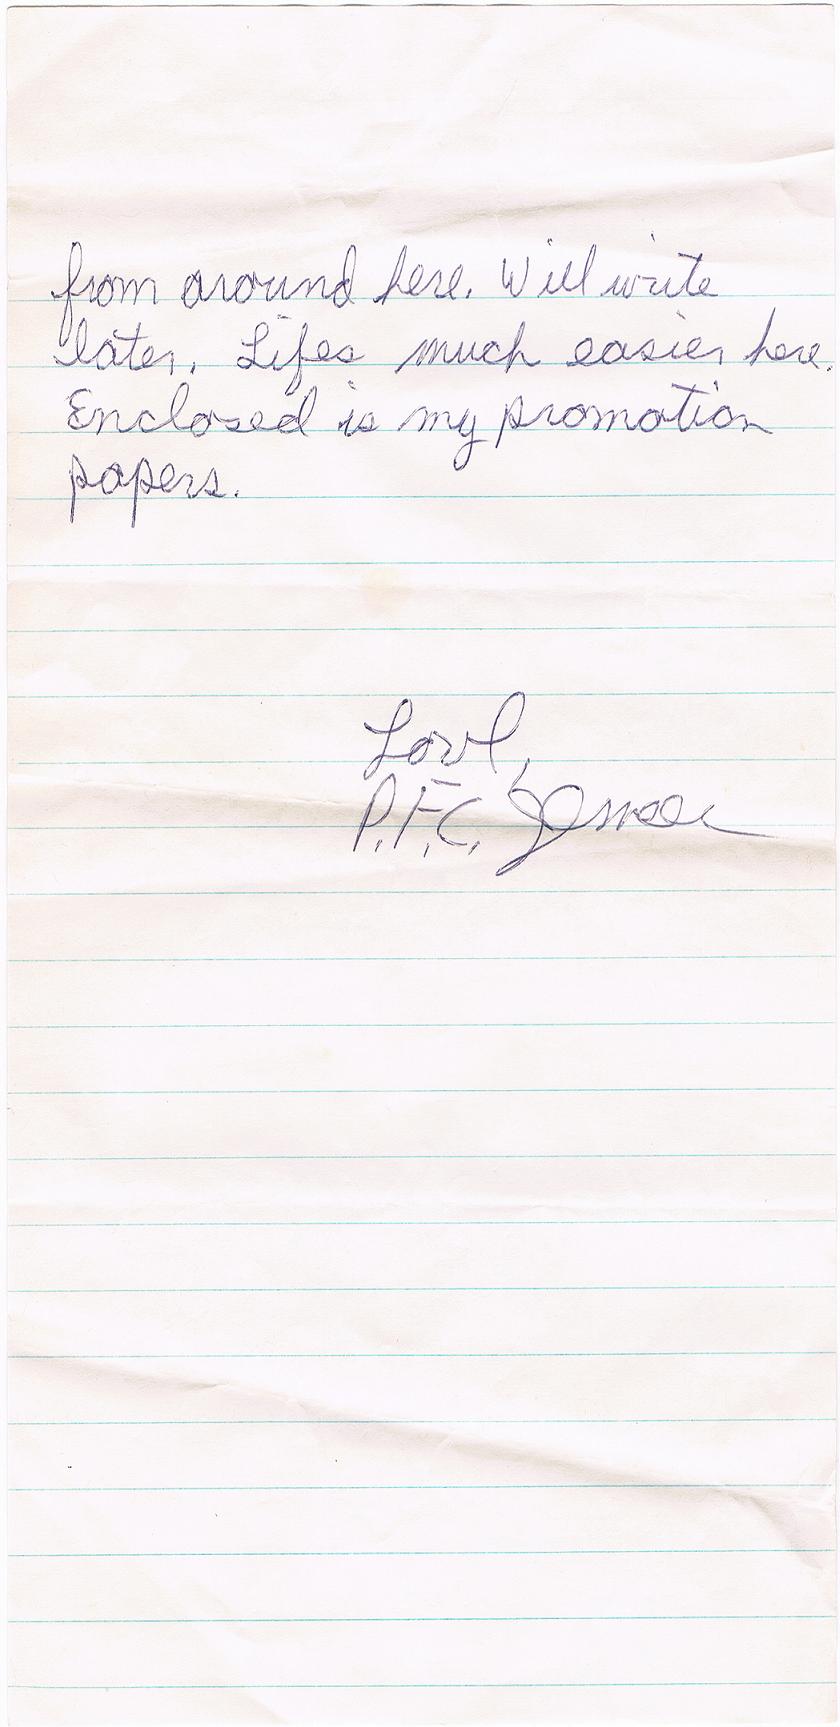 from around here. Will write
later. Lifes much easier here.
Enclosed is my promotion
papers.
Love,
P.F.C.